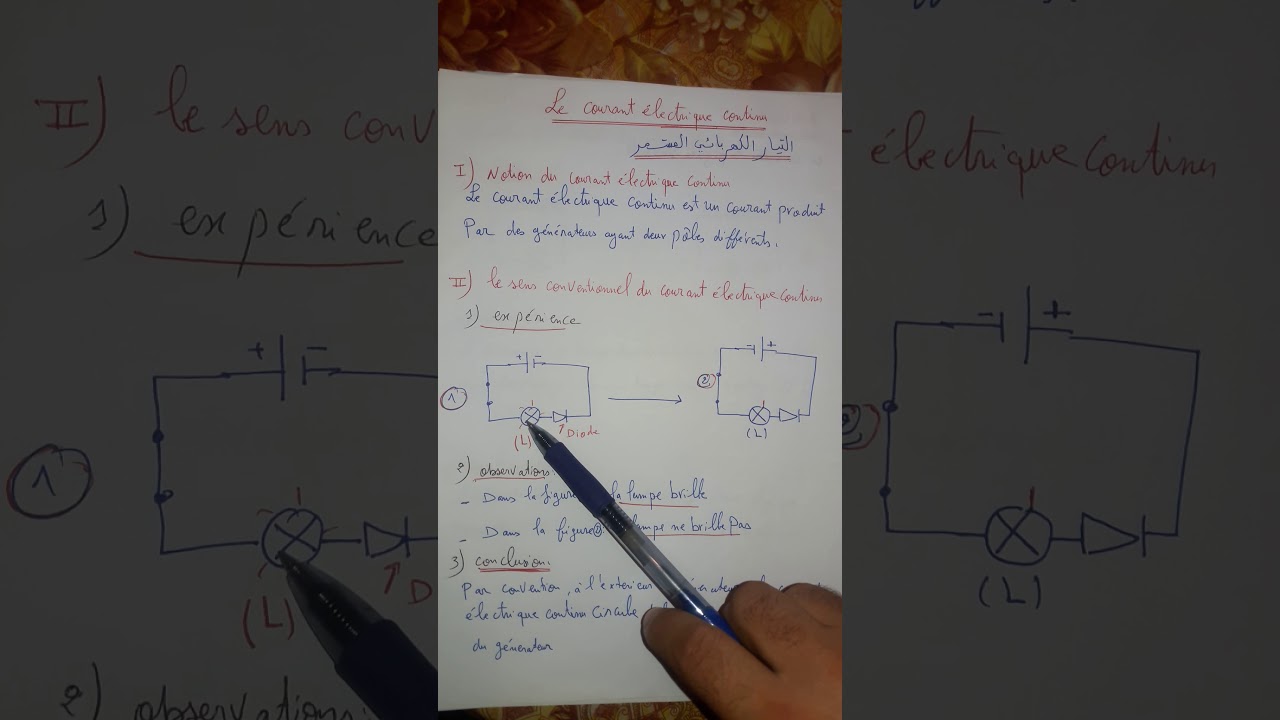 Le courant électrique continu
التيار الكهربائي المستمر
I) Notion du courant électrique continu
Le courant électrique continu est un courant produit
Par des générateurs ayant deux pôles différents.
II) le sens conventionnel du courant électrique continu
1) expérience
+ -
- +
1
2
(L)
Diode
(L)
2) observations
- Dans la figure la lampe brille
- Dans la figure 2 lampe ne brille Pas
3) conclusion.
Par convention, à l'extérieur
électrique continu circule
du générateur